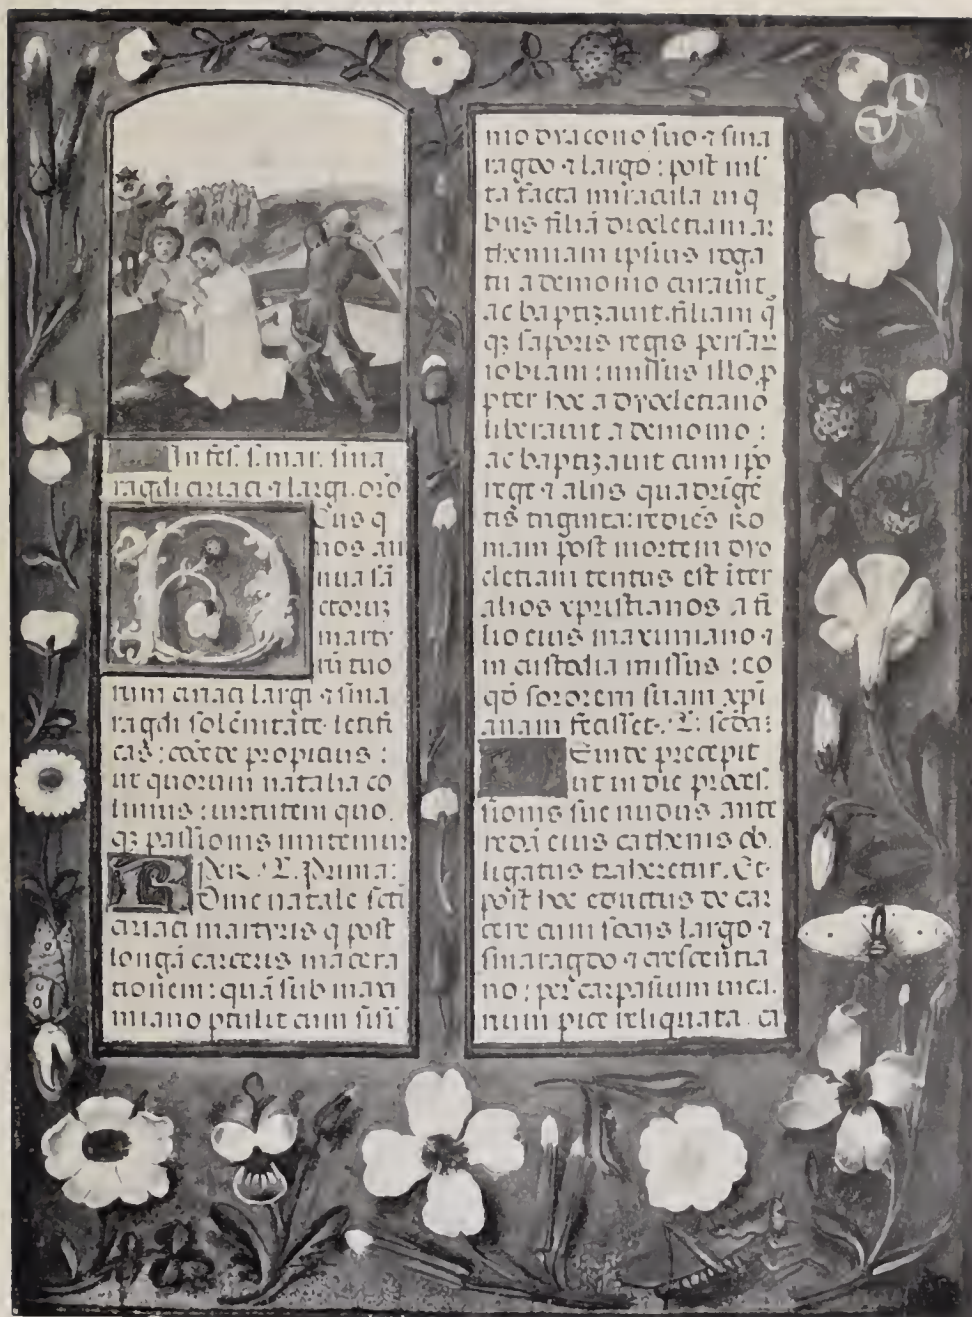 In fes. s. mar. sma
ragdi ciriaci ⁊ largi. orō
Eus q
nos an
nua sā
ctoruʒ
marty
rū tuo
rum ciriaci largi ⁊ sma
ragdi solēnitate letifi
cas : cōcede propicius :
ut quorum natalia co
limus : uirtutem quo
qʒ passionis imitemur
per. L. Prima:
Ome natale scti
ciriaci martyris q post
longā carceris macera
tionem : quā sub maxi
miano ptulit cum sisi
nio dyacono suo ⁊ sma
ragdo ⁊ largo : post ml
ta facta miracula in q
bus filiā dyocletiani ar
themiam ipsius roga
tu a demonio curauit
ac baptizauit. filiam q̄
qʒ saporis regis persaꝝ
iobiam : missus illo ꝓ
pter hoc a dyocletiano
liberauit a demonio :
ac baptizauit cum ipō
rege ⁊ aliis quadrigē
tis triginta : rediēs ro
mam post mortem dyo
cletiani tentus est iter
alios xpristianos a fi
lio eius maximiano ⁊
in custodia missus : eo
qđ sororem suam xpī
anam fecisset. L. scđa:
Einde precepit
ut in die proces.
sionis sue nudus ante
redā eius cathenis ob
ligatus traheretur. Et
post hoc eductus de car
cere cum sociis largo ⁊
smaragdo ⁊ crescentia
no : per carpasium uica.
rium pice reliquata ca